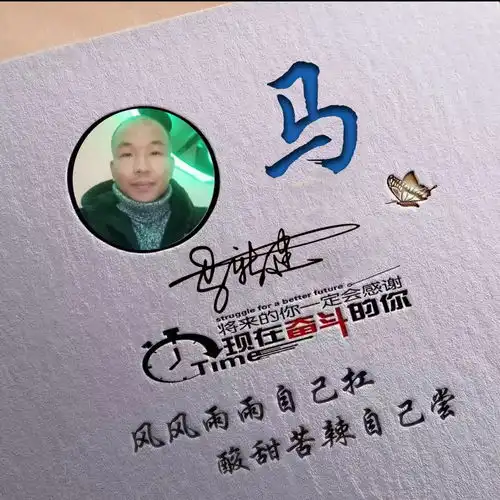 马
struggle for a better future
将来的你一定会感谢
现在奋斗的你
Time
风风雨雨自己扛
酸甜苦辣自己尝